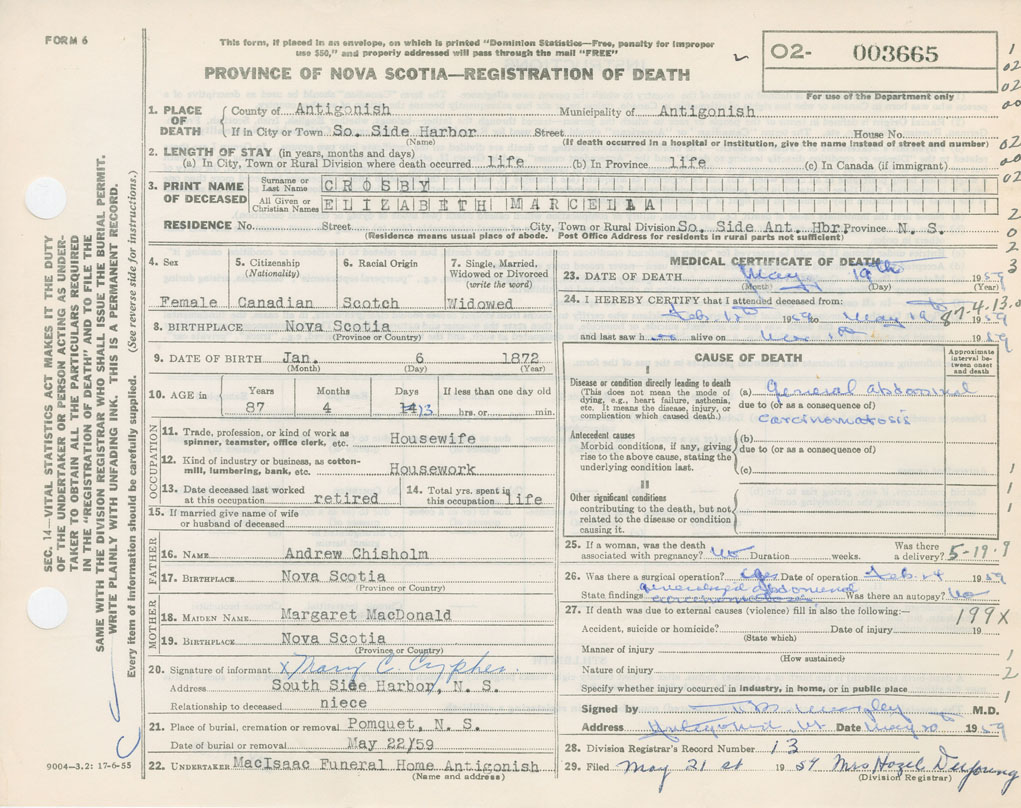 FORM 6
This form, if placed in an envelope, on which is printed "Dominion Statistics—Free, penalty for improper
use $50," and properly addressed will pass through the mail "FREE"
PROVINCE OF NOVA SCOTIA—REGISTRATION OF DEATH
02- 003665
For use of the Department only
1. PLACE OF DEATH
County of Antigonish Municipality of Antigonish
If in City or Town So. Side Harbor Street House No.
(Name) (If death occurred in a hospital or institution, give the name instead of street and number)
2. LENGTH OF STAY (in years, months and days)
(a) In City, Town or Rural Division where death occurred life (b) In Province life (c) In Canada (if immigrant)
3. PRINT NAME OF DECEASED
Surname or Last Name CROSBY
All Given or Christian Names ELIZABETH MARCELLA
RESIDENCE No. Street City, Town or Rural Division So. Side Ant. Hbr Province N. S.
(Residence means usual place of abode. Post Office Address for residents in rural parts not sufficient)
4. Sex Female
5. Citizenship (Nationality) Canadian
6. Racial Origin Scotch
7. Single, Married, Widowed or Divorced (write the word) Widowed
8. BIRTHPLACE Nova Scotia
(Province or Country)
9. DATE OF BIRTH Jan. 6 1872
(Month) (Day) (Year)
10. AGE in Years 87 Months 4 Days 14 13 If less than one day old hrs. or min.
OCCUPATION
11. Trade, profession, or kind of work as spinner, teamster, office clerk, etc. Housewife
12. Kind of industry or business, as cotton-mill, lumbering, bank, etc. Housework
13. Date deceased last worked at this occupation retired
14. Total yrs. spent in this occupation life
15. If married give name of wife or husband of deceased
FATHER
16. NAME Andrew Chisholm
17. BIRTHPLACE Nova Scotia
(Province or Country)
MOTHER
18. MAIDEN NAME Margaret MacDonald
19. BIRTHPLACE Nova Scotia
(Province or Country)
20. Signature of informant x Mary C. Cypher
Address South Side Harbor, N. S.
Relationship to deceased niece
21. Place of burial, cremation or removal Pomquet, N. S.
Date of burial or removal May 22/59
22. UNDERTAKER MacIsaac Funeral Home Antigonish
(Name and address)
9004—3.2: 17-6-55
MEDICAL CERTIFICATE OF DEATH
23. DATE OF DEATH May 19th 1959
(Month) (Day) (Year)
24. I HEREBY CERTIFY that I attended deceased from:
Feb. 12th 1959 to May 19th 1959
87-4-13.0
and last saw h alive on 1959
CAUSE OF DEATH
Approximate interval between onset and death
I
Disease or condition directly leading to death
(This does not mean the mode of dying, e.g., heart failure, asthenia, etc. It means the disease, injury, or complication which caused death.)
(a) general abdominal
due to (or as a consequence of)
carcinomatosis
Antecedent causes
Morbid conditions, if any, giving rise to the above cause, stating the underlying condition last.
(b)
due to (or as a consequence of)
(c)
II
Other significant conditions
contributing to the death, but not related to the disease or condition causing it.
25. If a woman, was the death associated with pregnancy? No Duration weeks. Was there a delivery?
5-19.9
26. Was there a surgical operation? yes Date of operation Feb. 24 1959
State findings generalized abdominal carcinomatosis Was there an autopsy? No
27. If death was due to external causes (violence) fill in also the following:—
199X
Accident, suicide or homicide? Date of injury 19
(State which)
Manner of injury
(How sustained)
Nature of injury
Specify whether injury occurred in industry, in home, or in public place
Signed by M.D.
Address Antigonish Date May 20 1959
28. Division Registrar's Record Number 13
29. Filed May 21st 1959 Mrs Hazel DeYoung
(Division Registrar)
SEC. 14—VITAL STATISTICS ACT MAKES IT THE DUTY
OF THE UNDERTAKER OR PERSON ACTING AS UNDER-
TAKER TO OBTAIN ALL THE PARTICULARS REQUIRED
IN THE "REGISTRATION OF DEATH" AND TO FILE THE
SAME WITH THE DIVISION REGISTRAR WHO SHALL ISSUE THE BURIAL PERMIT.
WRITE PLAINLY WITH UNFADING INK. THIS IS A PERMANENT RECORD.
Every item of information should be carefully supplied. (See reverse side for instructions.)